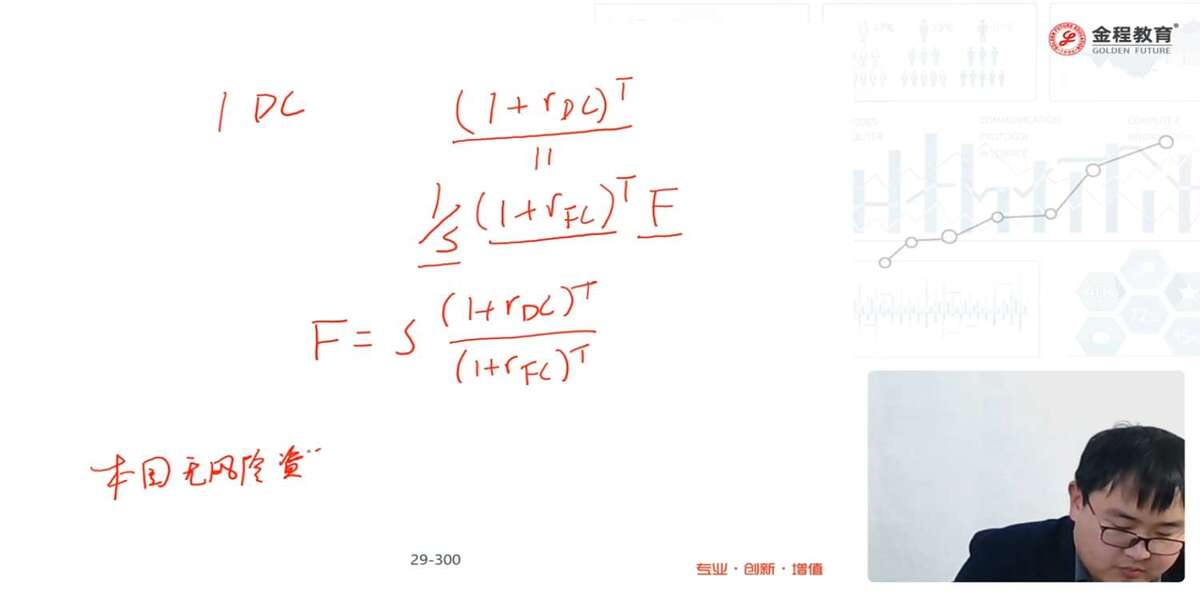 金程教育
GOLDEN FUTURE
1 DC
(1+rDC)^T
||
1/S (1+rFC)^T F
F = S (1+rDC)^T
(1+rFC)^T
本国无风险资
29-300
专业·创新·增值